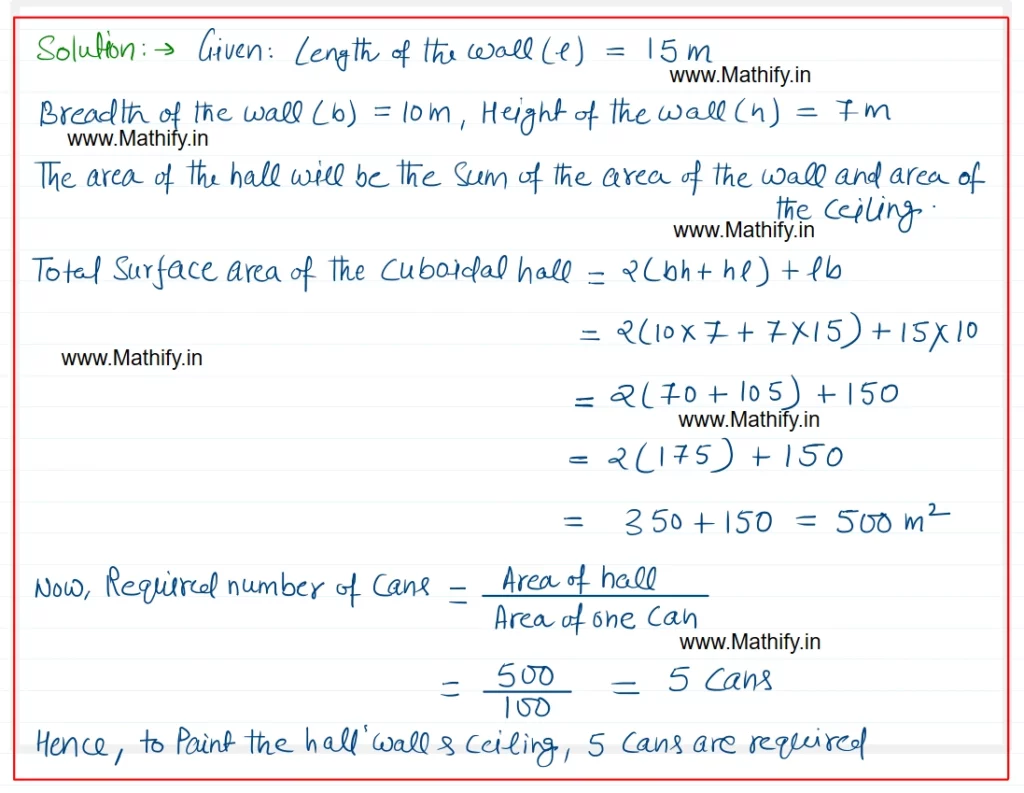 Solution:→ Given: Length of the wall (l) = 15 m
www.Mathify.in
Breadth of the wall (b) = 10m, Height of the wall (h) = 7m
www.Mathify.in
The area of the hall will be the sum of the area of the wall and area of
the ceiling.
www.Mathify.in
Total Surface area of the Cuboidal hall = 2(bh + hl) + lb
= 2(10 × 7 + 7 × 15) + 15 × 10
www.Mathify.in
= 2(70 + 105) + 150
www.Mathify.in
= 2(175) + 150
= 350 + 150 = 500 m²
Now, Required number of Cans = Area of hall
Area of one Can
www.Mathify.in
= 500 = 5 Cans
100
Hence, to Paint the hall' wall & ceiling, 5 Cans are required